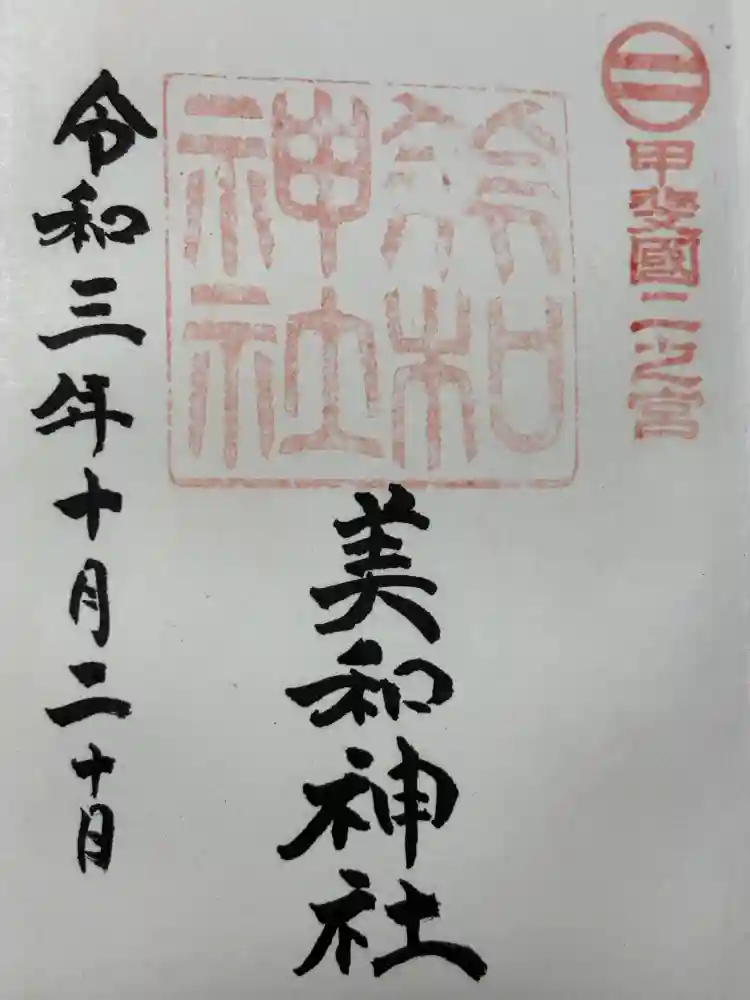 二
甲斐國二之宮
和
神社
美和神社
令和三年十月二十日